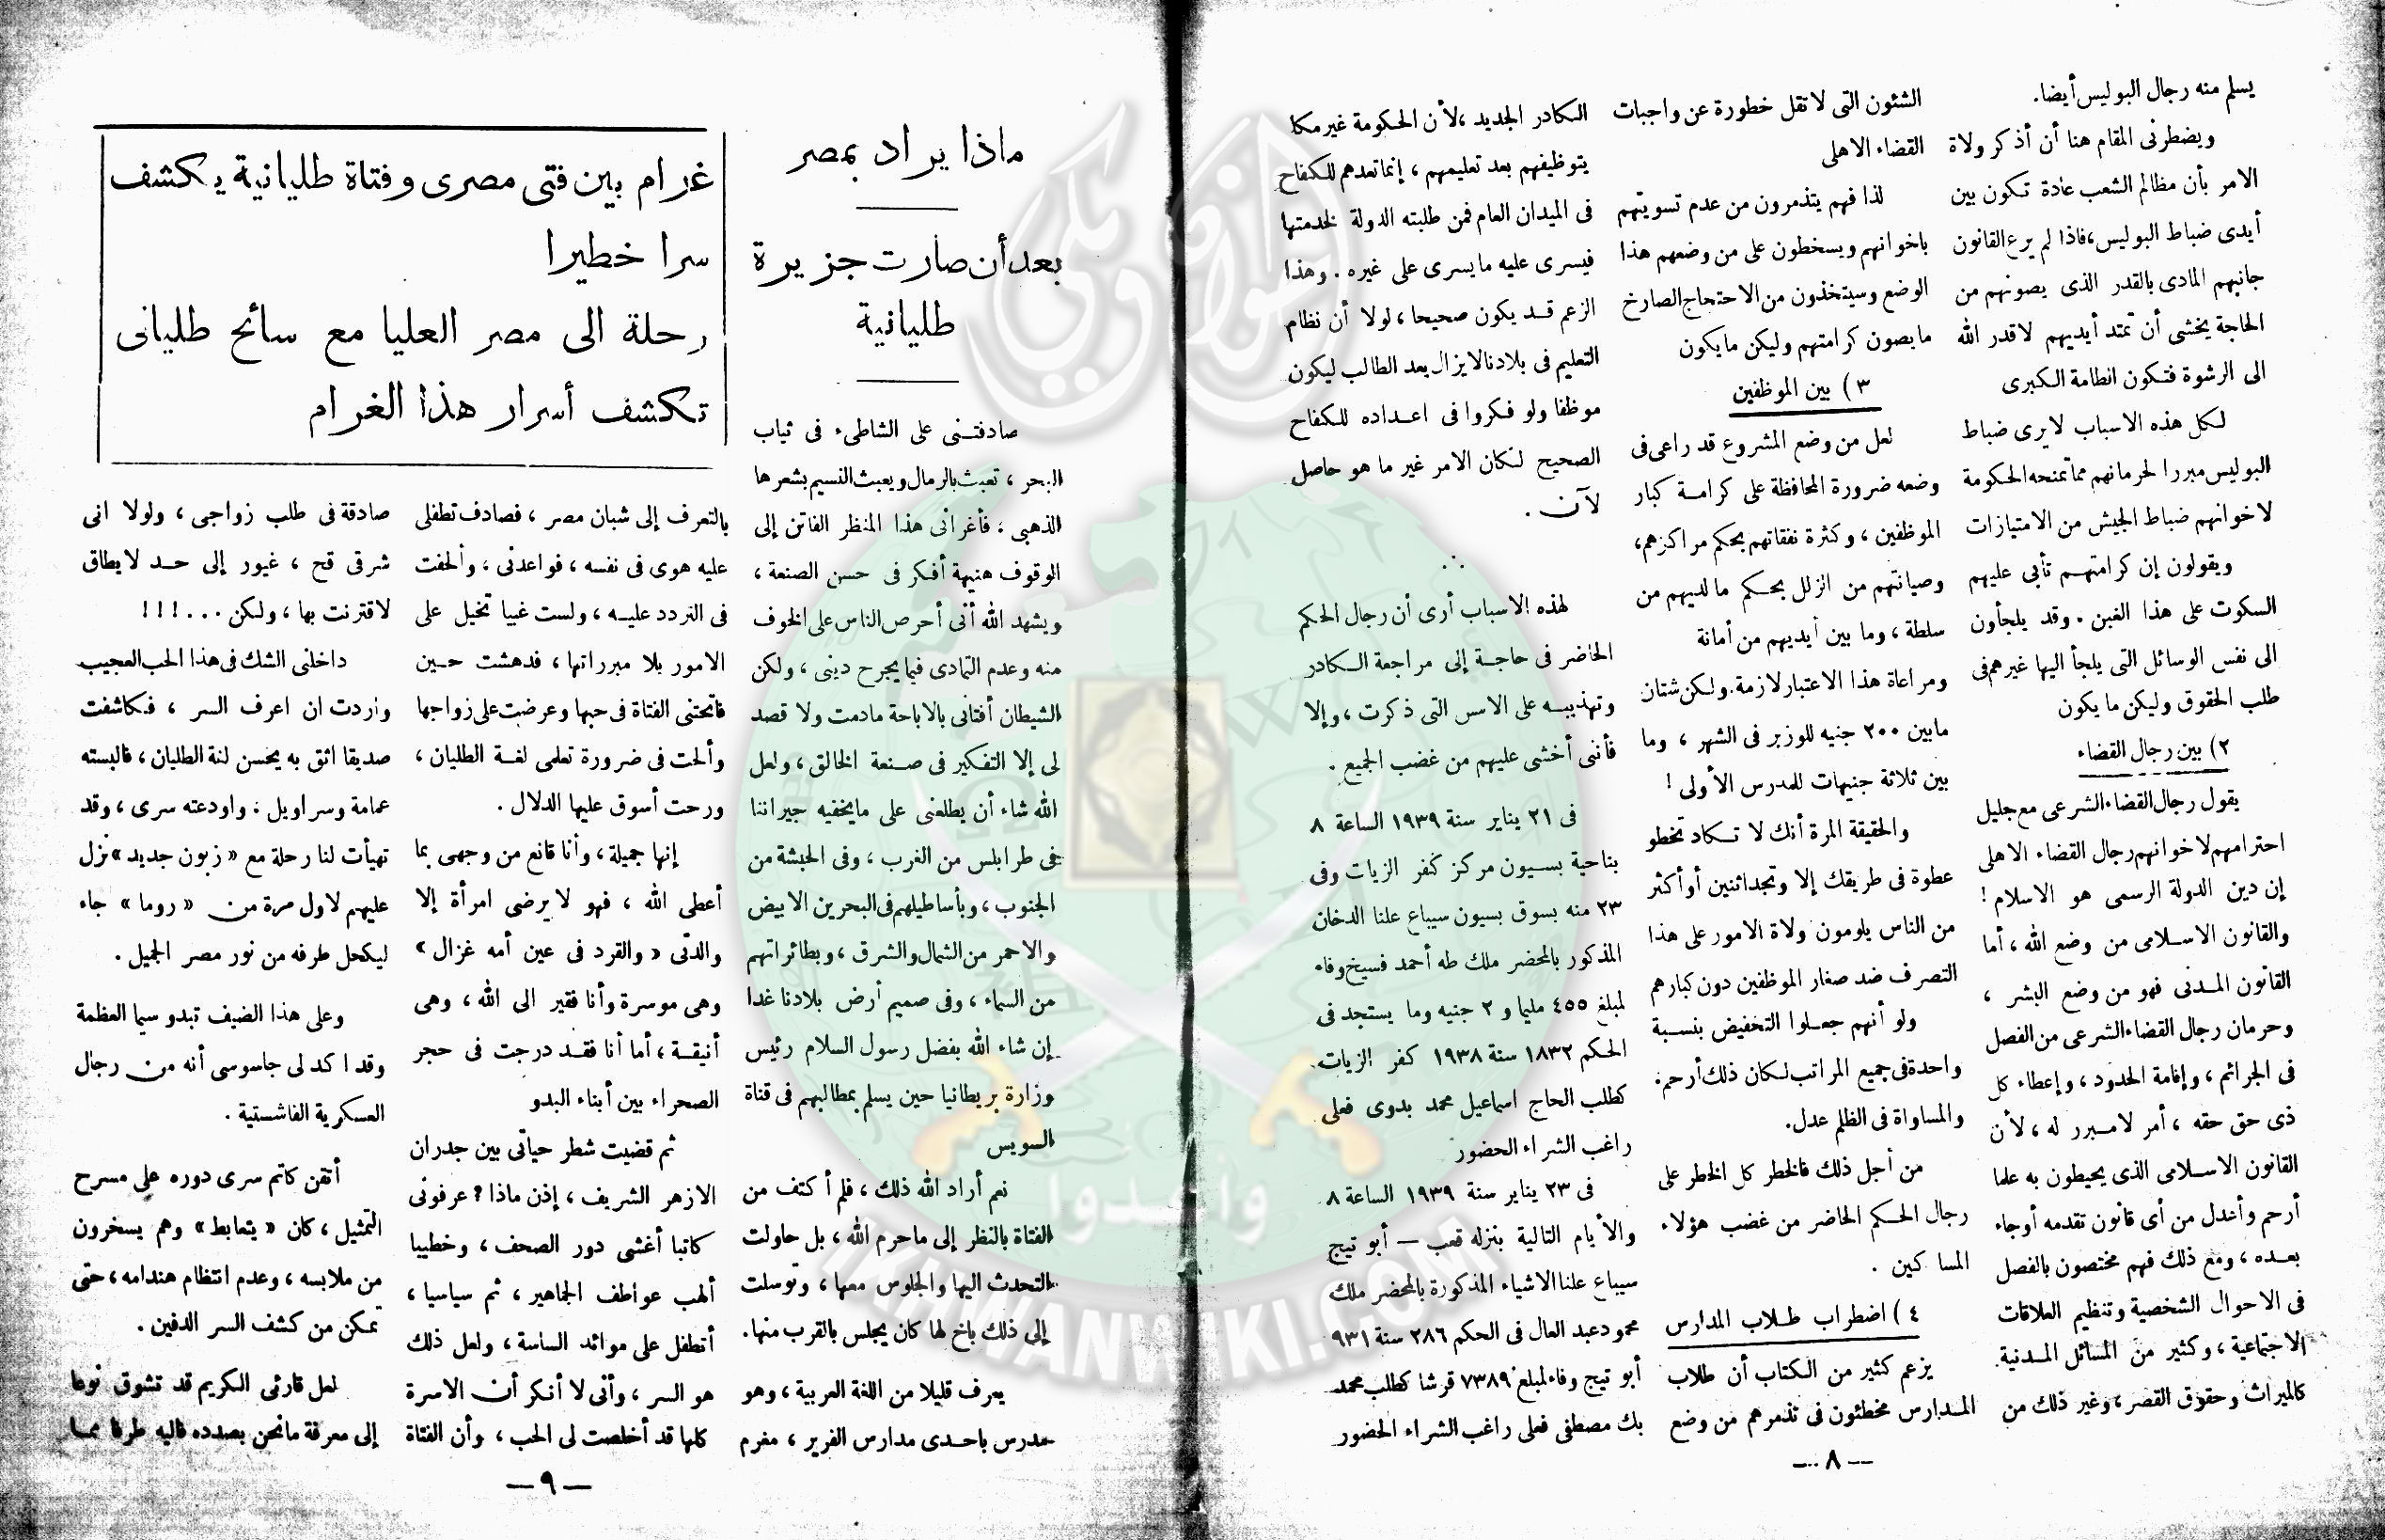 يسلم منه رجال البوليس أيضا.
ويضطرنى المقام هنا أن أذكر ولاة
الامر بأن مظالم الشعب عادة تكون بين
أيدى ضباط البوليس، فاذا لم يرع القانون
جانبهم المادى بالقدر الذى يصونهم من
الحاجة يخشى أن تمتد أيديهم لا قدر الله
الى الرشوة فتكون الطامة الكبرى
لكل هذه الاسباب لا يرى ضباط
البوليس مبررا لحرمانهم مما تمنحه الحكومة
لاخوانهم ضباط الجيش من الامتيازات
ويقولون إن كرامتهم تأبى عليهم
السكوت على هذا الغبن . وقد يلجأون
الى نفس الوسائل التى يلجأ اليها غيرهم فى
طلب الحقوق وليكن ما يكون
٢) بين رجال القضاء
يقول رجال القضاء الشرعى مع جليل
احترامهم لاخوانهم رجال القضاء الاهلى
إن دين الدولة الرسمى هو الاسلام !
والقانون الاسلامى من وضع الله ، أما
القانون المدنى فهو من وضع البشر ،
وحرمان رجال القضاء الشرعى من الفصل
فى الجرائم ، وإقامة الحدود ، وإعطاء كل
ذى حق حقه ، أمر لا مبرر له ، لأن
القانون الاسلامى الذى يحيطون به علما
أرحم وأعدل من أى قانون تقدمه أو جاء
بعده ، ومع ذلك فهم مختصون بالفصل
فى الاحوال الشخصية وتنظيم العلاقات
الاجتماعية ، وكثير من المسائل المدنية
كالميراث وحقوق القصر ، وغير ذلك من
الشئون التى لا تقل خطورة عن واجبات
القضاء الاهلى
لذا فهم يتذمرون من عدم تسويتهم
باخوانهم ويسخطون على من وضعهم هذا
الوضع وسيتخذون من الاحتجاج الصارخ
ما يصون كرامتهم وليكن ما يكون
٣ ) بين الموظفين
لعل من وضع المشروع قد راعى فى
وضعه ضرورة المحافظة على كرامة كبار
الموظفين ، وكثرة نفقاتهم بحكم مراكزهم،
وصيانتهم من الزلل بحكم ما لديهم من
سلطة ، وما بين أيديهم من أمانة
ومراعاة هذا الاعتبار لازمة . ولكن شتان
ما بين ٢٠٠ جنيه للوزير فى الشهر ، وما
بين ثلاثة جنيهات للمدرس الأولى !
والحقيقة المرة أنك لا تكاد تخطو
عطوة فى طريقك إلا وتجد اثنين أو أكثر
من الناس يلومون ولاة الامور على هذا
التصرف ضد صغار الموظفين دون كبارهم
ولو أنهم جعلوا التخفيض بنسبة
واحدة فى جميع المراتب لكان ذلك أرحم.
والمساواة فى الظلم عدل.
من أجل ذلك فالخطر كل الخطر على
رجال الحكم الحاضر من غضب هؤلاء
المساكين .
٤ ) اضطراب طلاب المدارس
يزعم كثير من الكتاب أن طلاب
المدارس مخطئون فى تذمرهم من وضع
الكادر الجديد ، لأن الحكومة غير مكا
يتوظيفهم بعد تعليمهم ، إنما تعدهم للكفاح
فى الميدان العام فمن طلبته الدولة لخدمتها
فيسرى عليه ما يسرى على غيره . وهذا
الزعم قد يكون صحيحا ، لولا أن نظام
التعليم فى بلادنا لا يزال يعد الطالب ليكون
موظفا ولو فكروا فى اعداده للكفاح
الصحيح لكان الامر غير ما هو حاصل
لآن .
∴
لهذه الاسباب أرى أن رجال الحكم
الحاضر فى حاجة إلى مراجعة الكادر
وتهذيبه على الاسس التى ذكرت ، وإلا
فأننى أخشى عليهم من غضب الجميع .
فى ٢١ يناير سنة ١٩٣٩ الساعة ٨
بناحية بسيون مركز كفر الزيات وفى
٢٣ منه بسوق بسيون سيباع علنا الدخان
المذكور بالمحضر ملك طه أحمد فسيخ وفاء
لمبلغ ٤٥٥ مليما و ٢ جنيه وما يستجد فى
الحكم ١٨٣٢ سنة ١٩٣٨ كفر الزيات
كطلب الحاج اسماعيل محمد بدوى فعلى
راغب الشراء الحضور
فى ٢٣ يناير سنة ١٩٣٩ الساعة ٨
والأيام التالية بنزله قعب — أبو تيج
سيباع علنا الاشياء المذكورة بالمحضر ملك
محمود عبد العال فى الحكم ٢٨٦ سنة ٩٣١
أبو تيج وفاء لمبلغ ٧٣٨٩ قرشا كطلب محمد
بك مصطفى فعلى راغب الشراء الحضور
— ٨ —
ماذا يراد بمصر
بعد أن صارت جزيرة
طليانية
غرام بين فتى مصرى وفتاة طليانية يكشف
سرا خطيرا
رحلة الى مصر العليا مع سائح طليانى
تكشف أسرار هذا الغرام
صادفتنى على الشاطىء فى ثياب
البحر ، تعبث بالرمال ويعبث النسيم بشعرها
الذهبى ، فأغرانى هذا المنظر الفاتن إلى
الوقوف هنيهة أفكر فى حسن الصنعة ،
ويشهد الله أنى أحرص الناس على الخوف
منه وعدم التمادى فيما يجرح دينى ، ولكن
الشيطان أفتانى بالاباحة ما دمت ولا قصد
لى إلا التفكير فى صنعة الخالق ، ولعل
الله شاء أن يطلعنى على ما يخفيه جيراننا
فى طرابلس من الغرب ، وفى الحبشة من
الجنوب ، وبأساطيلهم فى البحرين الابيض
والاحمر من الشمال والشرق ، وبطائراتهم
من السماء ، وفى صميم أرض بلادنا غدا
إن شاء الله بفضل رسول السلام رئيس
وزارة بريطانيا حين يسلم بمطالبهم فى قناة
السويس
نعم أراد الله ذلك ، فلم أكتف من
الفتاة بالنظر إلى ما حرم الله ، بل حاولت
التحدث اليها والجلوس معها ، وتوسلت
إلى ذلك باخ لها كان يجلس بالقرب منها.
يعرف قليلا من اللغة العربية ، وهو
مدرس باحدى مدارس الفرير ، مغرم
بالتعرف إلى شبان مصر ، فصادف تطفلى
عليه هوى فى نفسه ، فواعدنى ، وألحفت
فى التردد عليه ، ولست غبيا تخيل على
الامور بلا مبرراتها ، فدهشت حين
فاتحتنى الفتاة فى حبها وعرضت على زواجها
وألحت فى ضرورة تعلمى لغة الطليان ،
ورحت أسوق عليها الدلال .
إنها جميلة ، وأنا قانع من وجهى بما
أعطى الله ، فهو لا يرضى امرأة إلا
والدتى « والقرد فى عين أمه غزال »
وهى موسرة وأنا فقير الى الله ، وهى
أنيقة ، أما أنا فقد درجت فى حجر
الصحراء بين أبناء البدو
ثم قضيت شطر حياتى بين جدران
الازهر الشريف ، إذن ماذا ؟ عرفونى
كاتبا أغشى دور الصحف ، وخطيبا
ألهب عواطف الجماهير ، ثم سياسيا ،
أتطفل على موائد الساسة ، ولعل ذلك
هو السر ، وأنى لا أنكر أن الاسرة
كلها قد أخلصت لى الحب ، وأن الفتاة
صادقة فى طلب زواجى ، ولولا انى
شرقى قح ، غيور إلى حد لا يطاق
لاقترنت بها ، ولكن ...!!!
داخلنى الشك فى هذا الحب العجيب
واردت ان اعرف السر ، فكاشفت
صديقا اثق به يحسن لغة الطليان ، فالبسته
عمامة وسراويل ، واودعته سرى ، وقد
تهيأت لنا رحلة مع « زبون جديد » نزل
عليهم لاول مرة من « روما » جاء
ليكحل طرفه من نور مصر الجميل .
وعلى هذا الضيف تبدو سيما العظمة
وقد اكد لى جاسوسى أنه من رجال
العسكرية الفاشستية .
أتقن كاتم سرى دوره على مسرح
التمثيل ، كان « يتعابط » وهم يسخرون
من ملابسه ، وعدم انتظام هندامه ، حتى
تمكن من كشف السر الدفين .
لعل قارئى الكريم قد تشوق نوعا
إلى معرفة ما نحن بصدده فاليه طرفا مما
— ٩ —
وأعدوا
IKHWANWIKI.COM